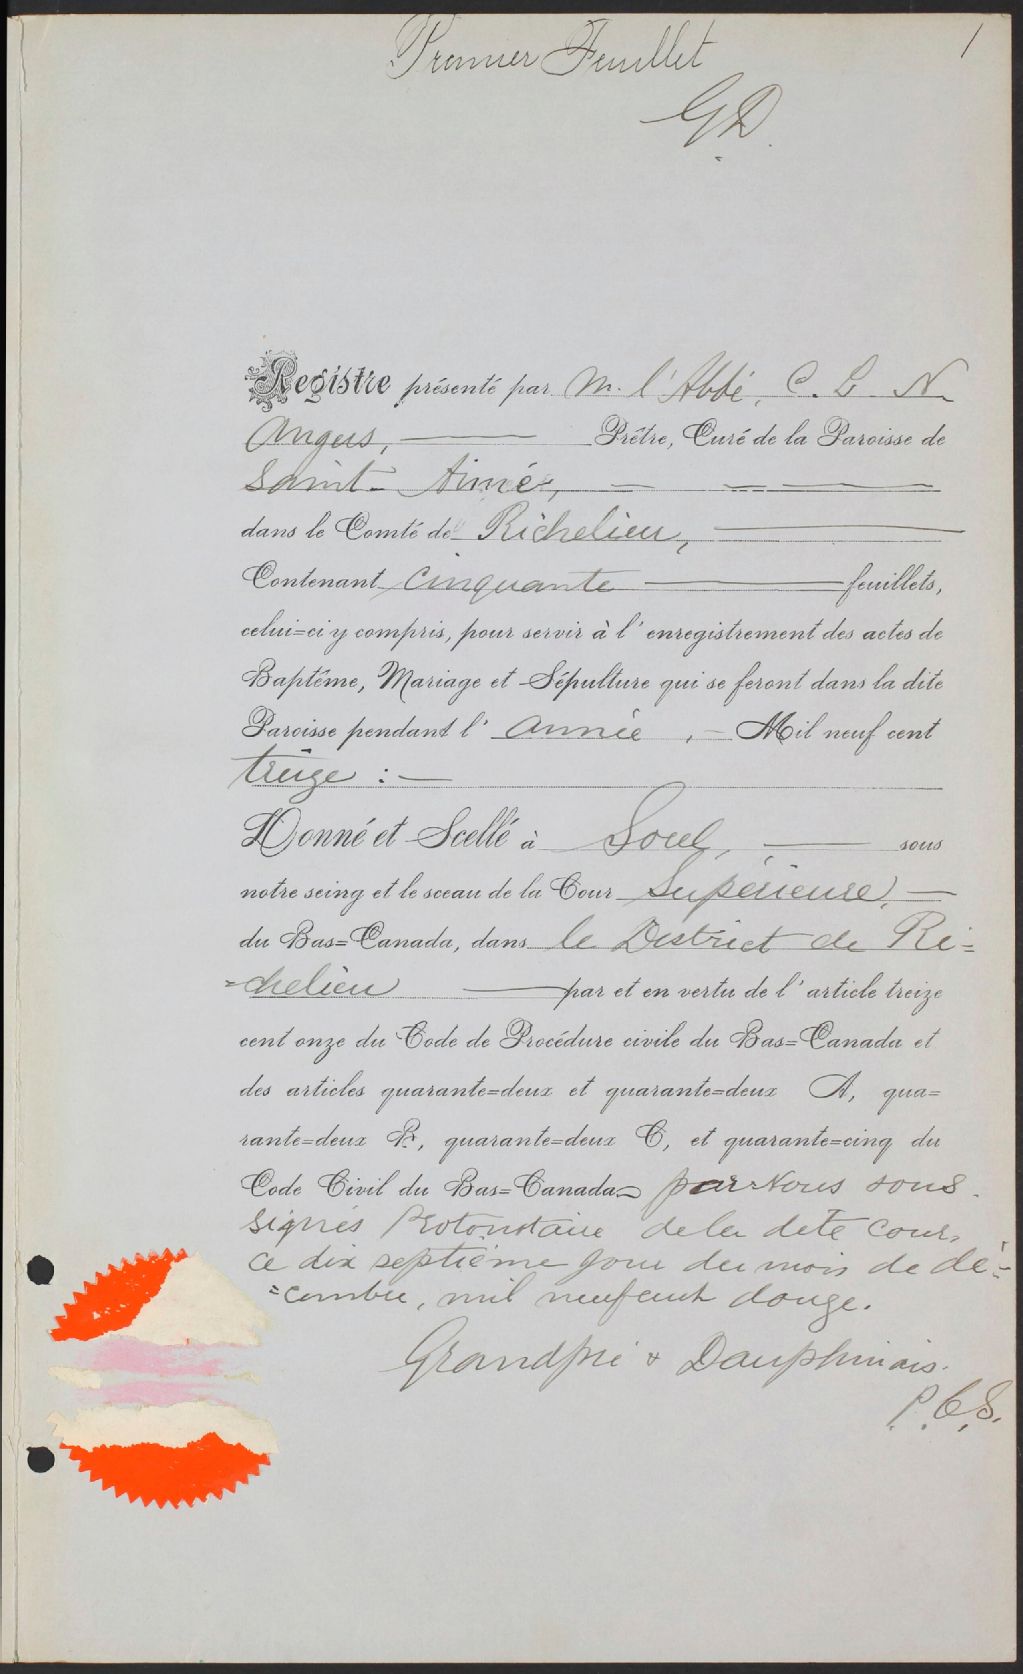 Premier Feuillet
1
G D
Registre présenté par M. l'Abbé, C. L. N.
Angers, Prêtre, Curé de la Paroisse de
Saint-Aimé,
dans le Comté de Richelieu,
Contenant cinquante feuillets,
celui=ci y compris, pour servir à l'enregistrement des actes de
Baptême, Mariage et Sépulture qui se feront dans la dite
Paroisse pendant l'année, Mil neuf cent
treize :
Donné et Scellé à Sorel, sous
notre seing et le sceau de la Cour Supérieure,
du Bas=Canada, dans le District de Ri=
=chelieu par et en vertu de l'article treize
cent onze du Code de Procédure civile du Bas=Canada et
des articles quarante=deux et quarante=deux A, qua=
rante=deux B, quarante=deux C, et quarante=cinq du
Code Civil du Bas=Canada par Nous sous
signés Protonotaire de la dite cour,
ce dix septième jour du mois de dé=
=cembre, mil neuf cent douze.
Grandpré & Dauphinais.
P. C. S.